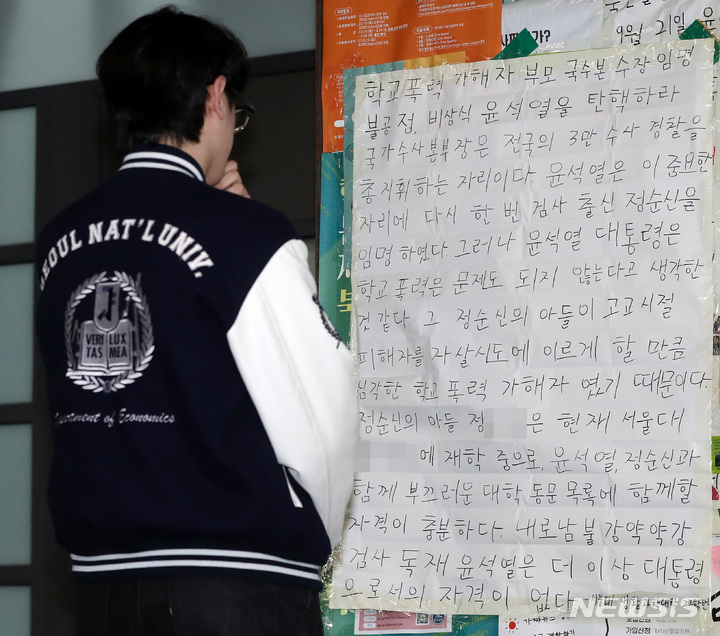 SEOUL NAT'L UNIV.
VERI LUX
TAS MEA
Department of Economics
9월 21일
학교폭력 가해자 부모 국수본 수장 임명
불공정, 비상식 윤석열을 탄핵하라
국가수사본부장은 전국의 3만 수사 경찰을
총지휘하는 자리이다. 윤석열은 이 중요한
자리에 다시 한 번 검사 출신 정순신을
임명 하였다. 그러나 윤석열 대통령은
학교폭력은 문제도 되지 않는다고 생각한
것 같다. 그 정순신의 아들이 고교시절
피해자를 자살시도에 이르게 할 만큼
심각한 학교폭력 가해자 였기 때문이다.
정순신의 아들 정 은 현재 서울대
에 재학 중으로, 윤석열, 정순신과
함께 부끄러운 대학 동문 목록에 함께할
자격이 충분하다. 내로남불 강약약강
검사 독재 윤석열은 더 이상 대통령
으로서의 자격이 없다.
NEWSIS